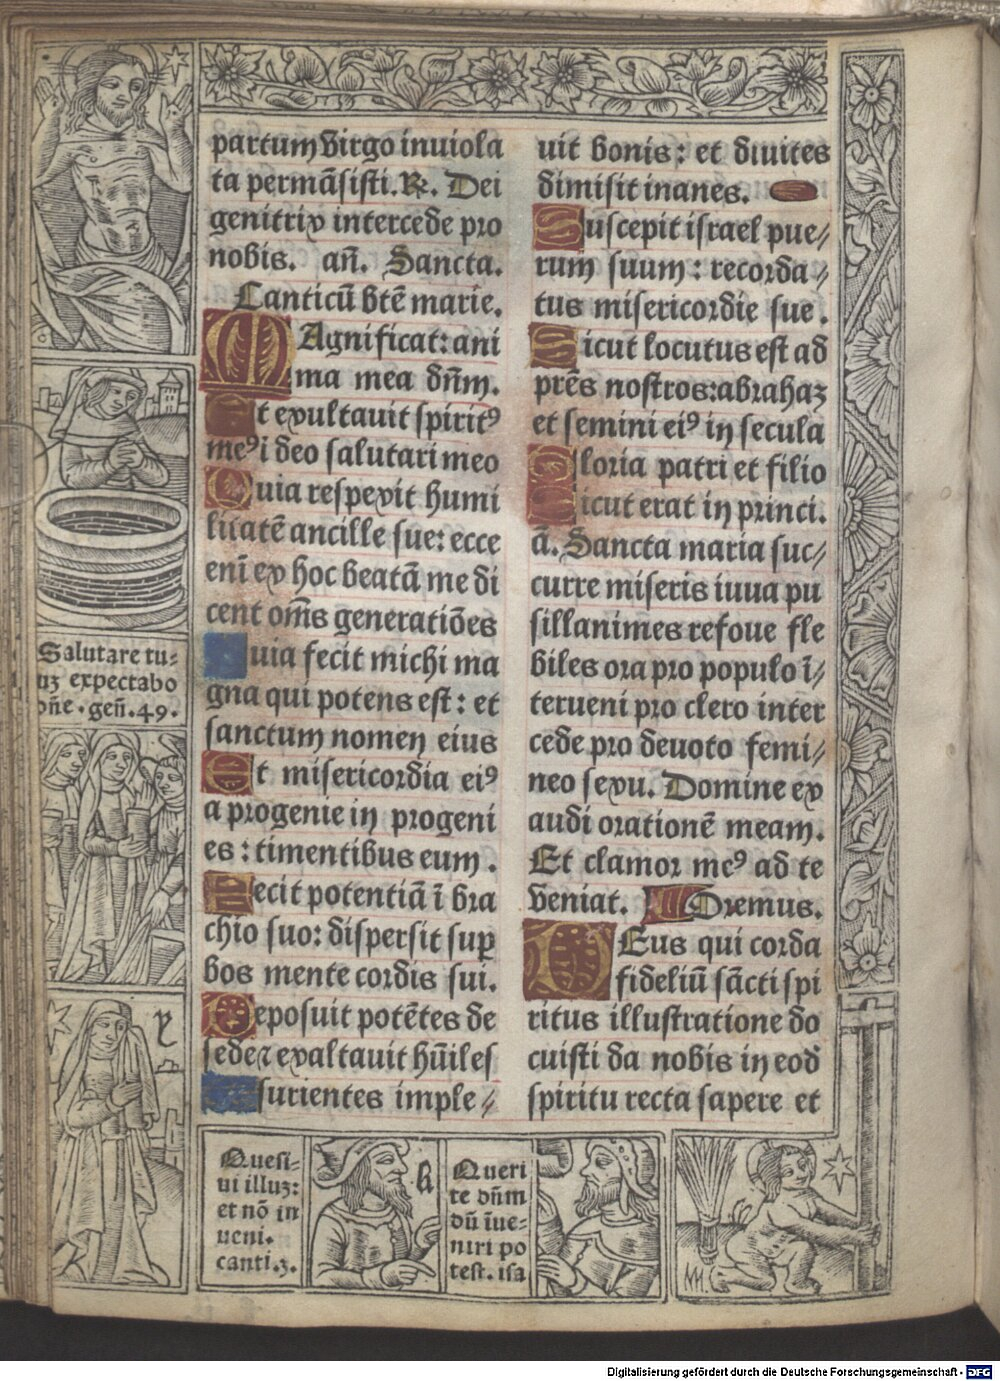 partum virgo inuiola
ta permāsisti. ℟. Dei
genitrix intercede pro
nobis. añ. Sancta.
Canticū btē marie.
MAgnificat: ani
ma mea dñm.
Et exultauit spiritꝰ
meꝰ i deo salutari meo
Quia respexit humi
litatē ancille sue: ecce
enī ex hoc beatā me di
cent om̄s generatiōes
uia fecit michi ma
gna qui potens est: et
sanctum nomen eius
Et misericordia eiꝰ
a progenie in progeni
es: timentibus eum.
Fecit potentiā ī bra
chio suo: dispersit sup̄
bos mente cordis sui.
Deposuit potētes de
sede ⁊ exaltauit hūiles
surientes imple⸗
uit bonis: et diuites
dimisit inanes.
Suscepit israel pue⸗
rum suum: recorda⸗
tus misericordie sue.
Sicut locutus est ad
prēs nostros: abrahaꝫ
et semini eiꝰ in secula
Gloria patri et filio
Sicut erat in princi.
ā. Sancta maria suc⸗
curre miseris iuua pu
sillanimes refoue fle
biles ora pro populo ī⸗
terueni pro clero inter
cede pro deuoto femi⸗
neo sexu. Domine ex
audi orationē meam.
Et clamor meꝰ ad te
veniat. Oremus.
DEus qui corda
fideliū sācti spi
ritus illustratione do
cuisti da nobis in eod̄
spiritu recta sapere et
Salutare tu⸗
uꝫ expectabo
dñe. geñ. 49.
Quesi⸗
ui illuꝫ:
et nō in
ueni.
canti.3.
Queri
te dñm
dū īue⸗
niri po
test. isa
Digitalisierung gefördert durch die Deutsche Forschungsgemeinschaft - DFG